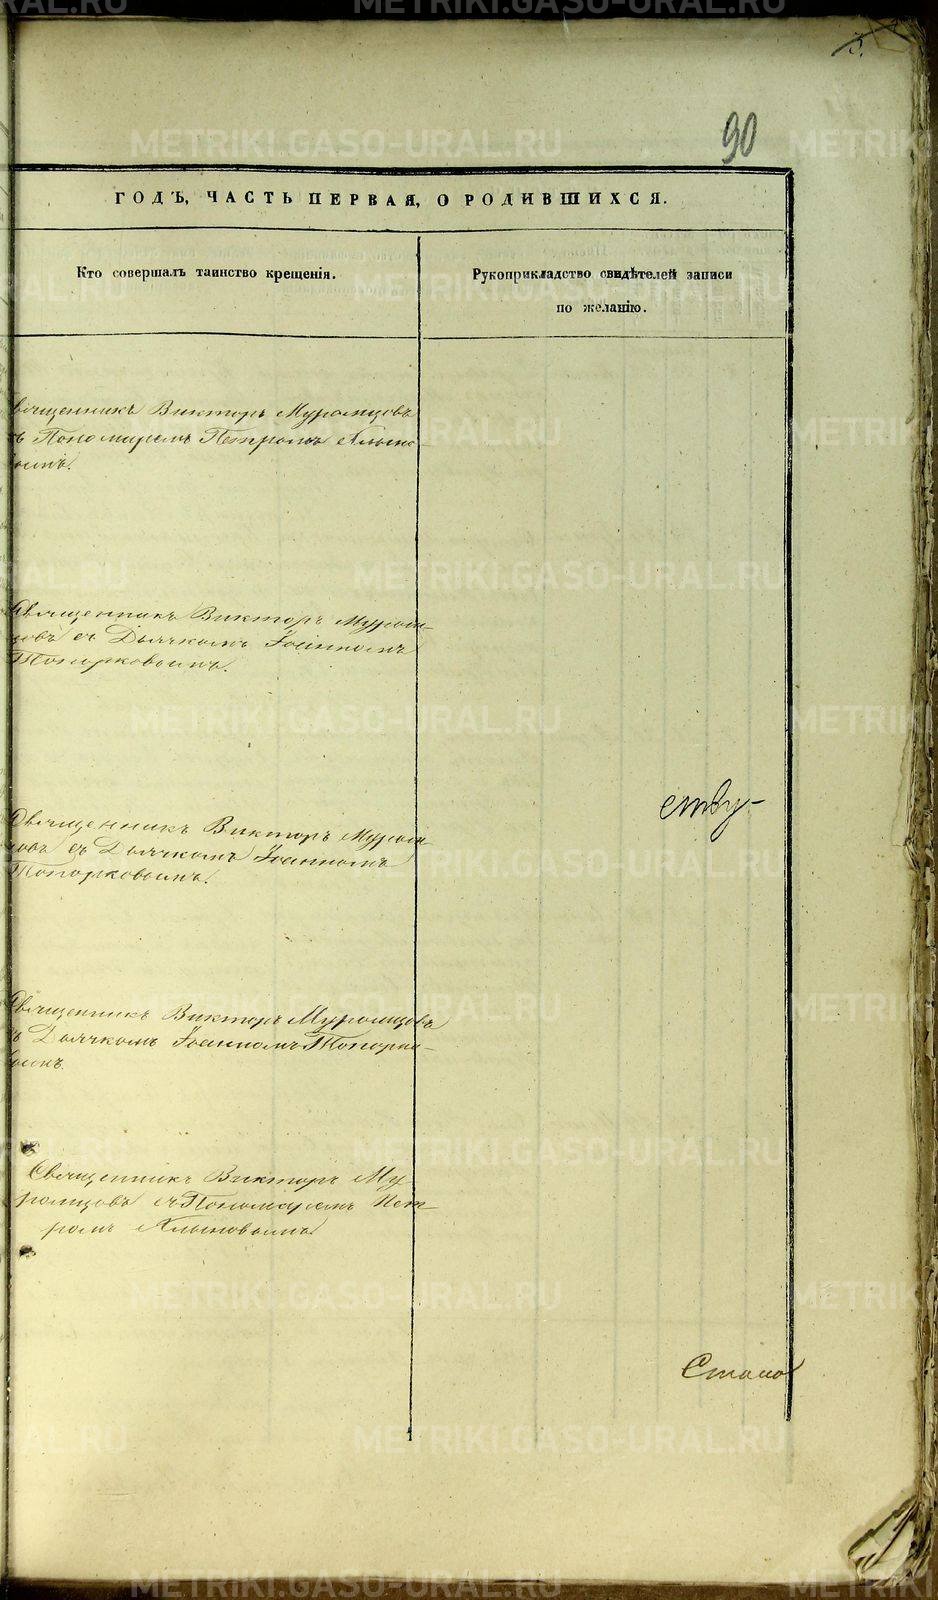 90
ГОДЪ, ЧАСТЬ ПЕРВАЯ, О РОДИВШИХСЯ.
Кто совершалъ таинство крещенія.
Рукоприкладство свидѣтелей записи
по желанію.
вященникъ Викторъ Муромцовъ
съ Пономаремъ Петромъ Хлыно
вымъ.
Священникъ Викторъ Муром-
цовъ съ Дьячкомъ Іоанномъ
Топорковымъ.
Священникъ Викторъ Муром
цовъ съ Дьячкомъ Іоанномъ
Топорковымъ.
Священникъ Викторъ Муромцовъ
съ Дьячкомъ Іоанномъ Топорко-
вымъ.
Священникъ Викторъ Му
ромцовъ съ Пономаремъ Пет-
ромъ Хлыновымъ
METRIKI.GASO-URAL.RU